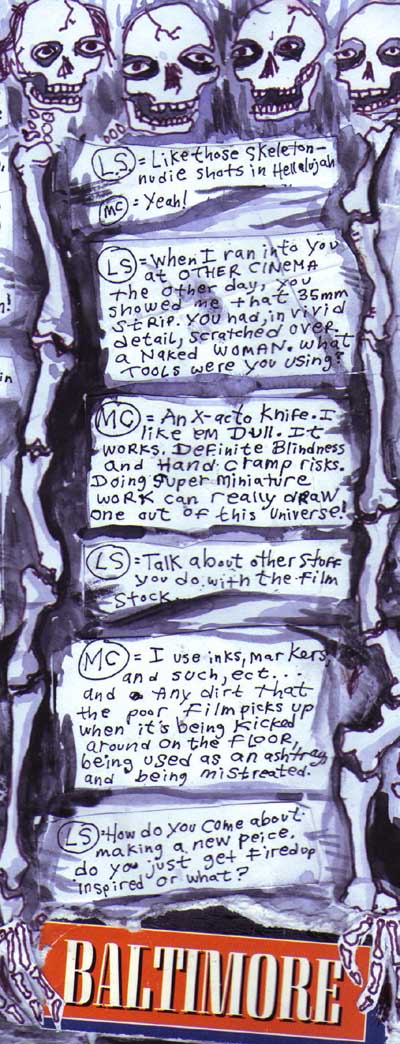 LS = Like those Skeleton-
nudie shots in Hellalujah
MC = Yeah!
LS = When I ran into you
at OTHER CINEMA
the other day, you
showed me that 35mm
StRiP. YOU had, in vivid
detail, scratched over
a Naked WOMAN. What
TOOLS were you using?
MC = An X-acto Knife. I
like 'em Dull. It
WORKS. Definite Blindness
and Hand cramp risks.
Doing Super Miniature
woRK can really dRaw
one out of this Universe!
LS = Talk about other stuff
you do with the film
Stock.
MC = I use inks, markers,
and such, ect...
and a Any dirt that
the poor film picks up
when it's being Kicked
around on the FLOOR,
being used as an ashtray
and being mistreated.
LS = How do you come about
making a new peice.
do you just get fired up
inspired or what?
BALTIMORE
in